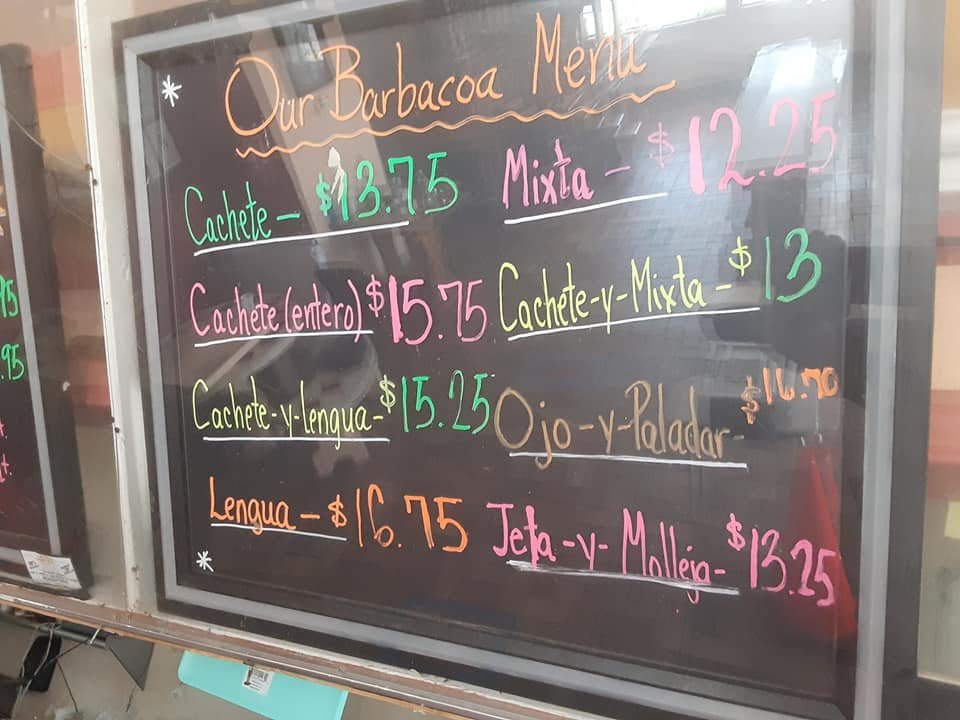 Our Barbacoa Menu
Cachete - $13.75
Cachete (entero) $15.75
Cachete-y-lengua- $15.25
Lengua - $16.75
Mixta - $12.25
Cachete-y-Mixta - $13
Ojo-y-Paladar- $16.70
Jeta-y-Molleja- $13.25
.95